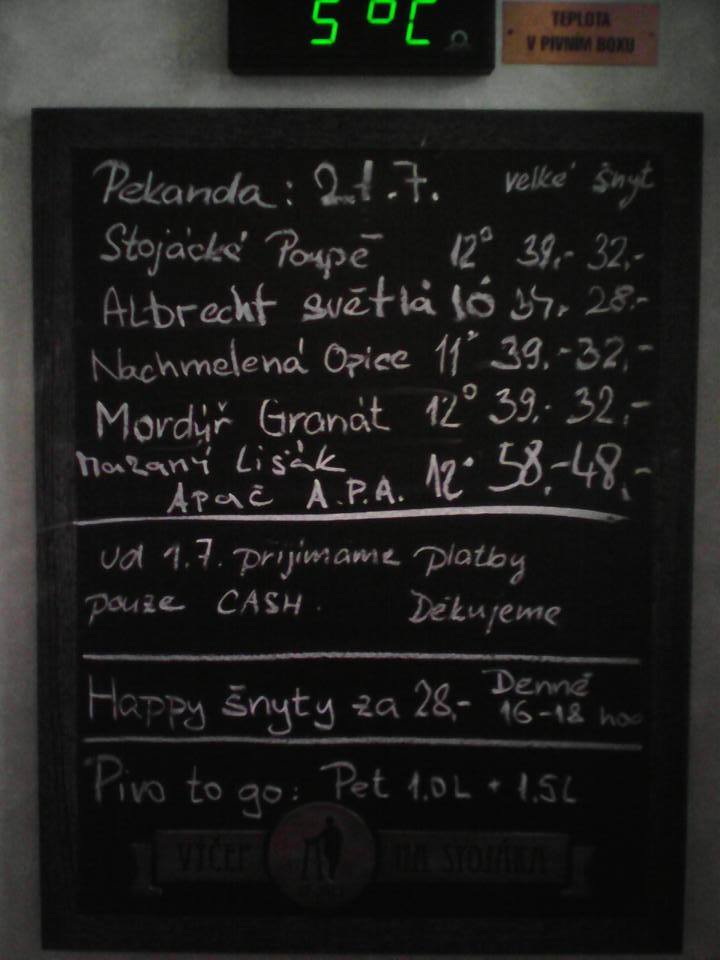 5°C
TEPLOTA
V PIVNÍM BOXU
Pekanda: 21.7. velké šnyt
Stojácké Poupě 12° 39,- 32,-
ALbrecht světlá 10 37,- 28,-
Nachmelená Opice 11° 39,- 32,-
Mordýř Granát 12° 39,- 32,-
Mazaný Lišák
Apač A.P.A. 12° 58,- 48,-
od 1.7. prijímame platby
pouze CASH. Děkujeme
Happy šnyty za 28,- Denně
16-18 hod
Pivo to go: Pet 1.0L + 1.5L
VÝČEP NA STOJÁKA